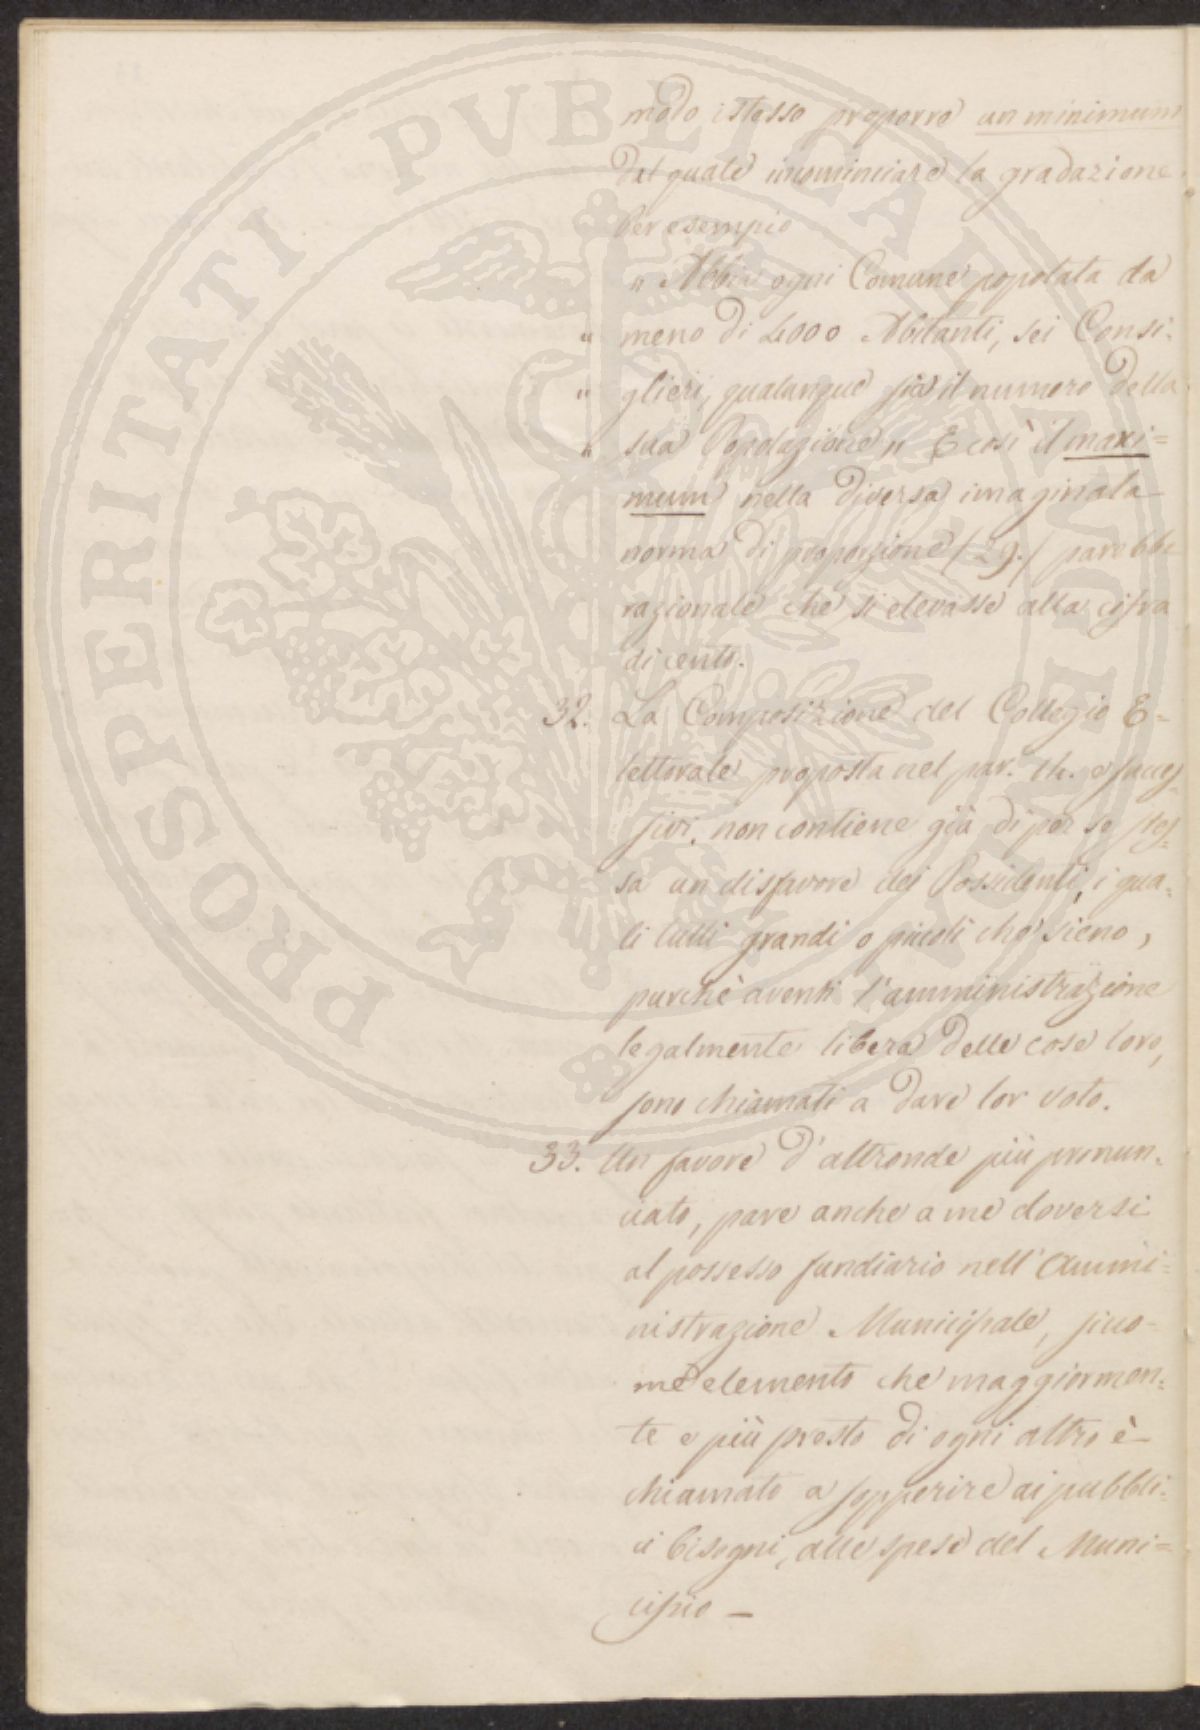 PROSPERITATI PUBLICAE AUGENDAE
modo istesso proporrò un minimum
dal quale incominciare la gradazione.
Per esempio
" Abbia ogni Comune popolata da
" meno di 4000 Abitanti, sei Consi-
" glieri, qualunque sia il numero della
" sua Popolazione " E così il maxi=
mum nella diversa imaginata
norma di proporzione / 29. / parebbe
razionale che si elevasse alla cifra
di cento.
32. La Composizione del Collegio E=
lettorale proposta nel par. 14. e succes-
sivi, non contiene già di per se stes-
sa un disfavore dei Possidenti, i qua-
li tutti grandi o piccoli che sieno,
purchè aventi l'amministrazione
legalmente libera delle cose loro,
sono chiamati a dare lor voto.
33. Un favore d'altronde più pronun-
ciato, pare anche a me doversi
al possesso fundiario nell'Ammi=
nistrazione Municipale, sicco-
me elemento che maggiormen-
te e più presto di ogni altro è
chiamato a sopperire ai pubbli-
ci bisogni, alle spese del Muni=
cipio —